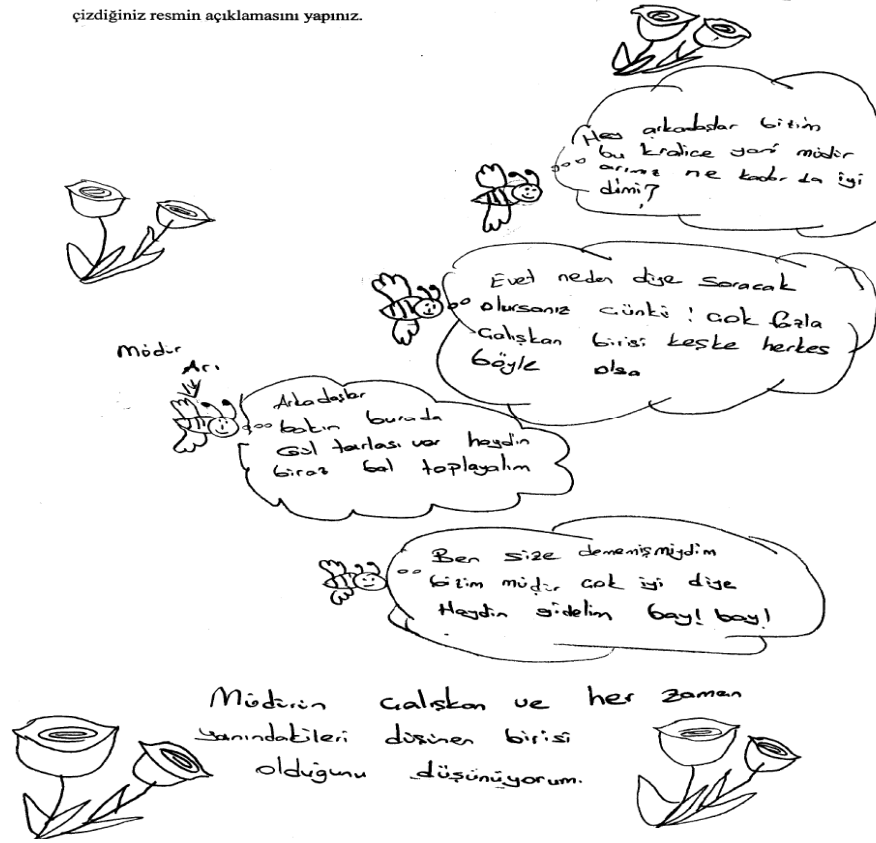 çizdiğiniz resmin açıklamasını yapınız.
Hey arkadaşlar bizim
bu kraliçe yani müdür
arımız ne kadar da iyi
dimi?
Evet neden diye soracak
olursanız çünkü ! çok fazla
çalışkan birisi keşke herkes
böyle olsa
Müdür
Arı
Arkadaşlar
bakın burada
Gül tarlası var haydin
biraz bal toplayalım
Ben size dememişmiydim
bizim müdür çok iyi diye
Haydin gidelim bay! bay!
Müdürün çalışkan ve her zaman
yanındakileri düşünen birisi
olduğunu düşünüyorum.